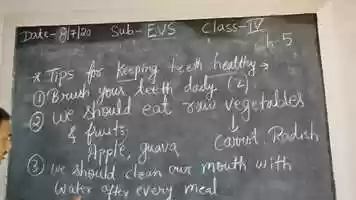 Date- 8/7/20 Sub- EVS Class- IV
Ch. 5
* Tips for keeping teeth healthy →
① Brush your teeth daily (2)
② We should eat raw vegetables
& fruits ↓
Apple, guava Carrot, Radish
③ We should clean our mouth with
water after every meal